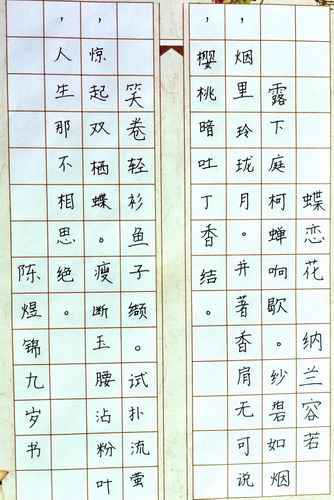 蝶恋花 纳兰容若
露下庭柯蝉响歇。纱碧如烟
，烟里玲珑月。并著香肩无可说
，樱桃暗吐丁香结。
笑卷轻衫鱼子缬。试扑流萤
，惊起双栖蝶。瘦断玉腰沾粉叶
，人生那不相思绝。
陈煜锦九岁书